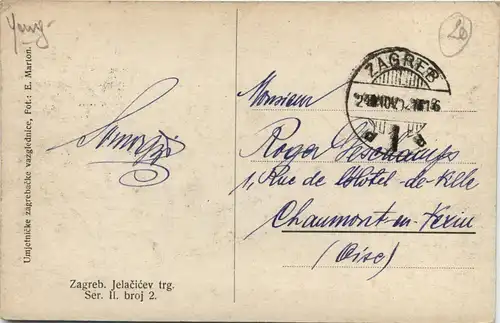 Umjetničke zagrebačke vazglednice, Fot.: E. Marton.
Zagreb. Jelačićev trg.
Ser. II. broj 2.
20
ZAGREB
Monsieur
Roger Deschamps
1, Rue de l'Hôtel-de-Ville
Chaumont-en-Vexin
(Oise)